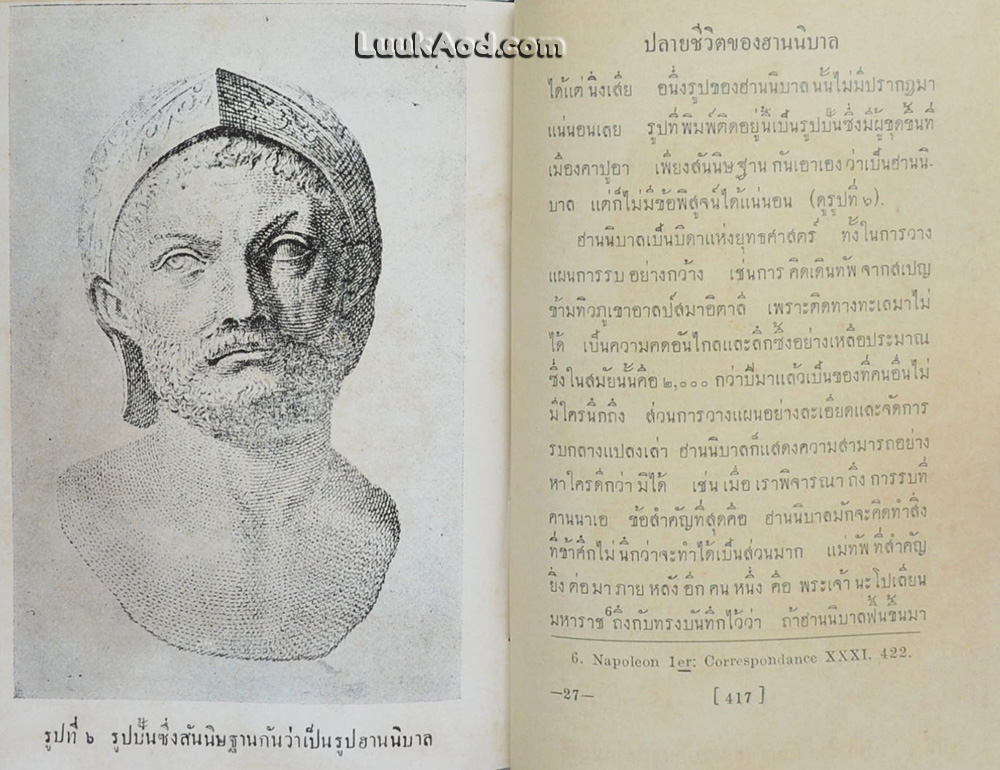 LuukAod.com
รูปที่ ๖ รูปปั้นซึ่งสันนิษฐานกันว่าเป็นรูปฮานนิบาล
ปลายชีวิตของฮานนิบาล
ได้แต่นิ่งเสีย อนึ่งรูปของฮานนิบาลนั้นไม่มีปรากฏมา
แน่นอนเลย รูปที่พิมพ์ติดอยู่นี้เป็นรูปปั้นซึ่งมีผู้ขุดขึ้นที่
เมืองคาปูอา เพียงสันนิษฐานกันเอาเองว่าเป็นฮานนิ-
บาล แต่ก็ไม่มีข้อพิสูจน์ได้แน่นอน (ดูรูปที่ ๖).
ฮานนิบาลเป็นบิดาแห่งยุทธศาสตร์ ทั้งในการวาง
แผนการรบอย่างกว้าง เช่นการคิดเดินทัพจากสเปญ
ข้ามทิวภูเขาอาลป์สมาอิตาลี เพราะติดทางทะเลมาไม่
ได้ เป็นความคดอันไกลและลึกซึ้งอย่างเหลือประมาณ
ซึ่งในสมัยนั้นคือ ๒,๐๐๐ กว่าปีมาแล้วเป็นของที่คนอื่นไม่
มีใครนึกถึง ส่วนการวางแผนอย่างละเอียดและจัดการ
รบกลางแปลงเล่า ฮานนิบาลก็แสดงความสามารถอย่าง
หาใครดีกว่ามิได้ เช่นเมื่อเราพิจารณาถึงการรบที่
คานนาเอ ข้อสำคัญที่สุดคือ ฮานนิบาลมักจะคิดทำสิ่ง
ที่ข้าศึกไม่นึกว่าจะทำได้เป็นส่วนมาก แม่ทัพที่สำคัญ
ยิ่งต่อมาภายหลังอีกคนหนึ่ง คือ พระเจ้านะโปเลียน
มหาราช6ถึงกับทรงบันทึกไว้ว่า ถ้าฮานนิบาลฟื้นขึ้นมา
6. Napoleon 1er: Correspondance XXXI. 422.
—27— [417]